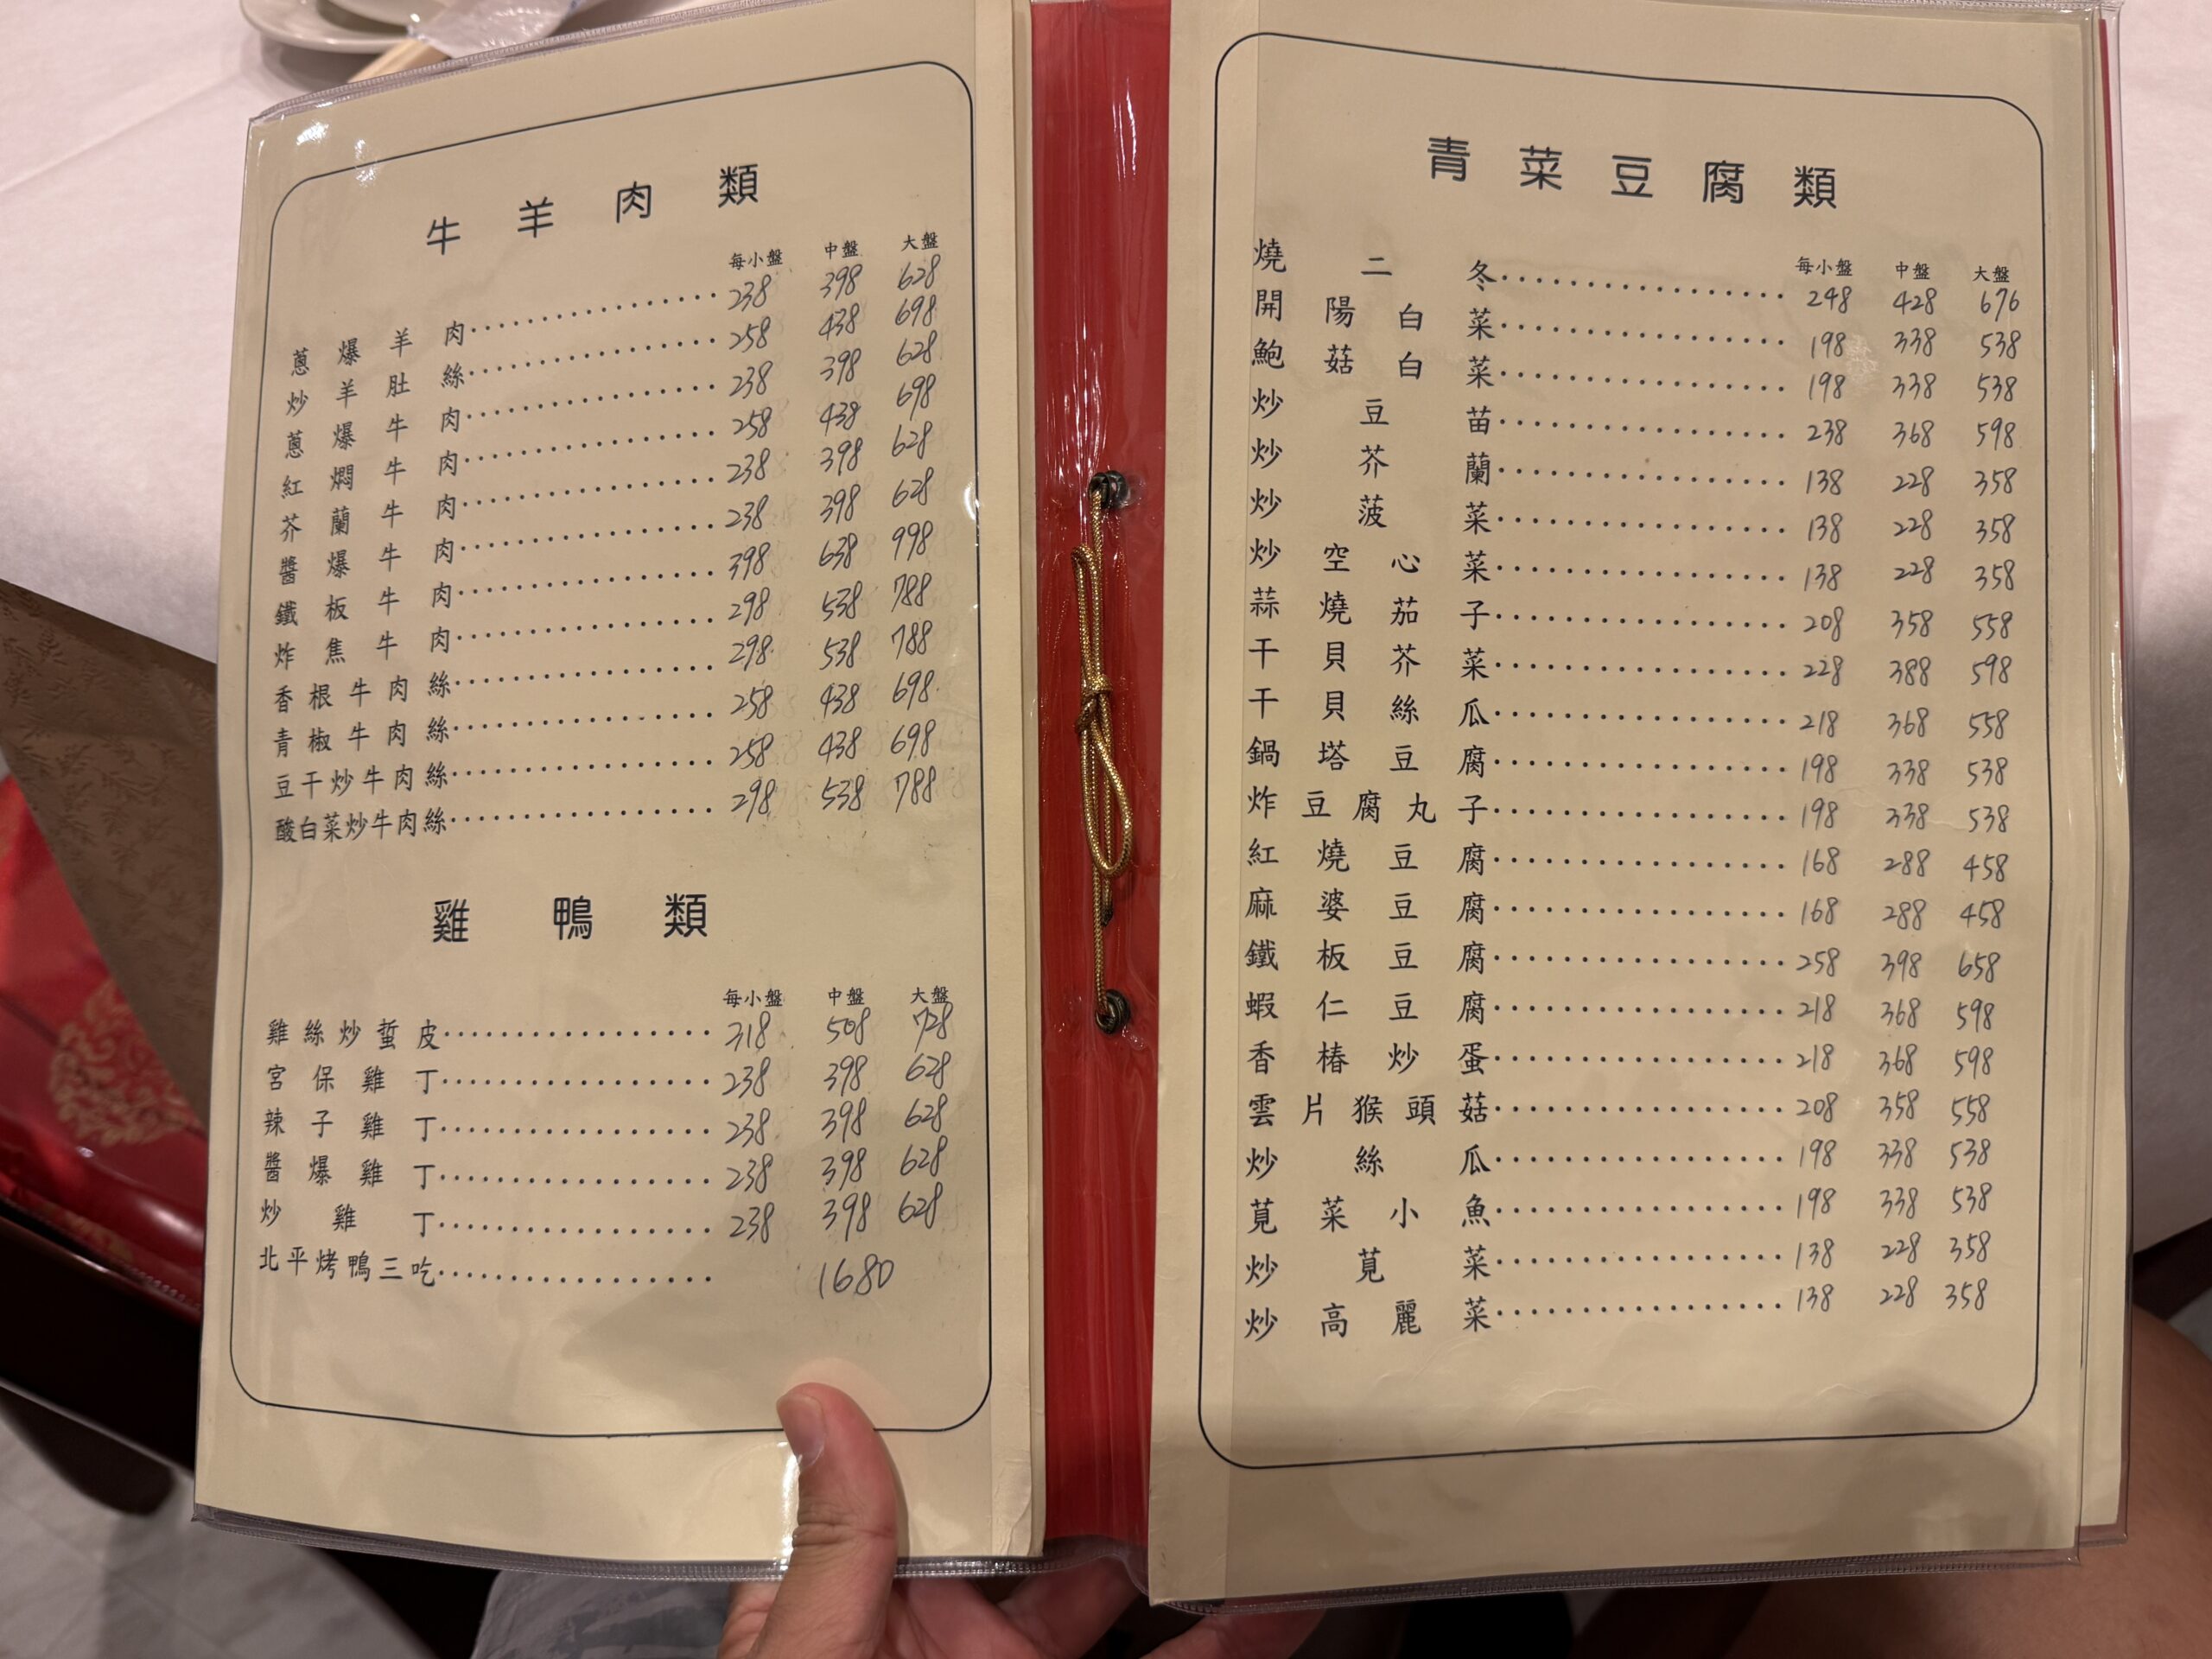 牛羊肉類
每小盤 中盤 大盤
蔥爆羊肉 238 398 628
炒羊肚絲 258 438 698
蔥爆牛肉 238 398 628
紅燜牛肉 258 438 698
芥蘭牛肉 238 398 628
醬爆牛肉 238 398 628
鐵板牛肉 398 638 998
炸焦牛肉 298 538 788
香根牛肉絲 298 538 788
青椒牛肉絲 258 438 698
豆干炒牛肉絲 258 438 698
酸白菜炒牛肉絲 298 538 788
雞鴨類
每小盤 中盤 大盤
雞絲炒蜇皮 318 508 728
宮保雞丁 238 398 628
辣子雞丁 238 398 628
醬爆雞丁 238 398 628
炒雞丁 238 398 628
北平烤鴨三吃 1680
青菜豆腐類
每小盤 中盤 大盤
燒二冬 248 428 676
開陽白菜 198 338 538
鮑菇白菜 198 338 538
炒豆苗 238 368 598
炒芥蘭 138 228 358
炒菠菜 138 228 358
炒空心菜 138 228 358
蒜燒茄子 208 358 558
干貝芥菜 228 388 598
干貝絲瓜 218 368 558
鍋塔豆腐 198 338 538
炸豆腐丸子 198 338 538
紅燒豆腐 168 288 458
麻婆豆腐 168 288 458
鐵板豆腐 258 398 658
蝦仁豆腐 218 368 598
香椿炒蛋 218 368 598
雲片猴頭菇 208 358 558
炒絲瓜 198 338 538
莧菜小魚 198 338 538
炒莧菜 138 228 358
炒高麗菜 138 228 358